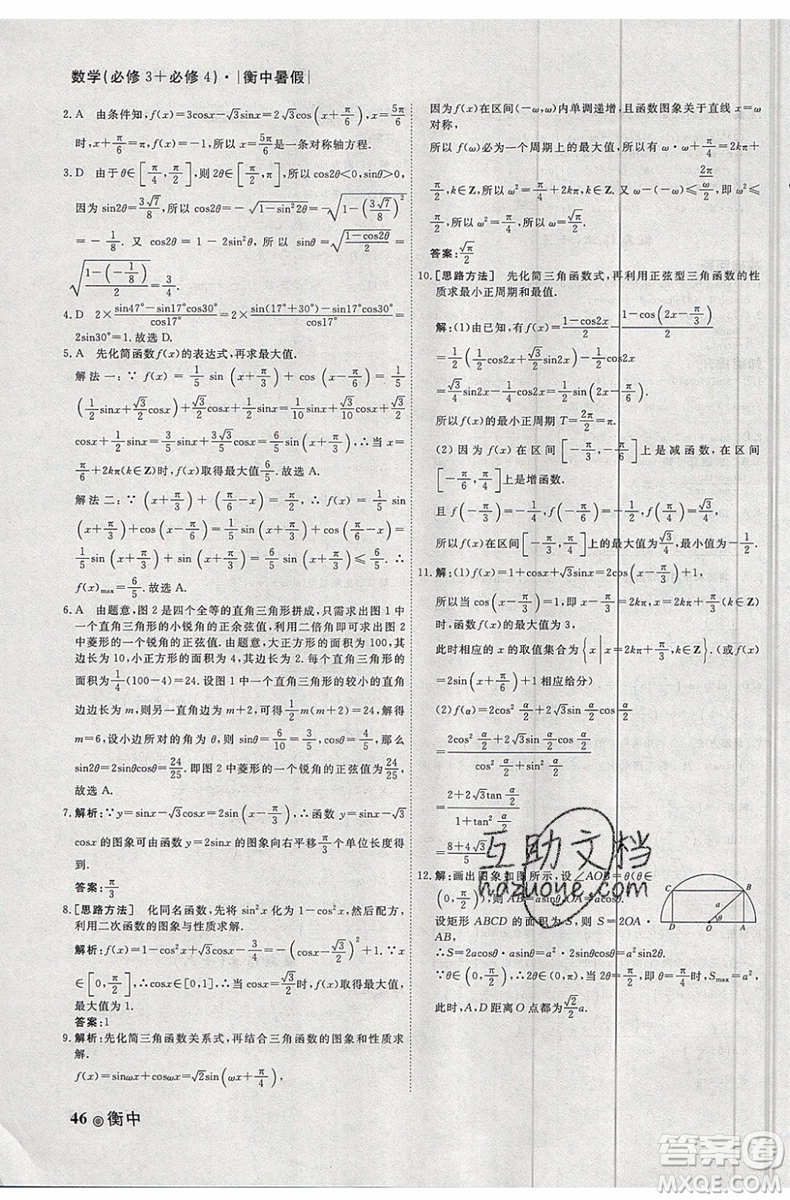 数学(必修3+必修4)·|衡中暑假|
2. A 由条件知,f(x)=3cosx-√3sinx=2√3cos(x+π/6),x=5π/6
时,x+π/6=π,所以x=5π/6是对称轴方程.
3. D 由于θ∈[π/4,π/2],则2θ∈[π/2,π],所以cos2θ<0,sinθ>0,
因为sin2θ=3√7/8,所以cos2θ=-√(1-sin²2θ)=-√(1-(3√7/8)²)
=-1/8.又cos2θ=1-2sin²θ,所以sinθ=√((1-cos2θ)/2)=
√((1-(-1/8))/2)=3/4.
4. D 2×(sin47°-sin17°cos30°)/cos17°=2×(sin(17°+30°)-sin17°cos30°)/cos17°=
2sin30°=1.故选D.
5. A 先化简函数f(x)的表达式,再求最大值.
解法一:∵f(x)=1/5 sin(x+π/3)+cos(x-π/6)=1/5
(1/2 sinx+√3/2 cosx)+√3/2 cosx+1/2 sinx=1/10 sinx+√3/10 cosx+√3/2
cosx+1/2 sinx=3/5 sinx+3√3/5 cosx=6/5 sin(x+π/3),∴当x=
π/6+2kπ(k∈Z)时,f(x)取得最大值6/5.故选A.
解法二:∵(x+π/3)+(π/6-x)=π/2,∴f(x)=1/5 sin
(x+π/3)+cos(x-π/6)=1/5 sin(x+π/3)+cos(π/6-x)=1/5
sin(x+π/3)+sin(x+π/3)=6/5 sin(x+π/3)≤6/5.
∴f(x)max=6/5.故选A.
6. A 由题意,图2是四个全等的直角三角形拼成,只需求出图1中
一个直角三角形的小锐角的正余弦值,利用二倍角即可求出图
2中菱形的一个锐角的正弦值.由题意,大正方形的面积为100,其
边长为10,小正方形的面积为4,其边长为2.每个直角三角形的
面积为1/4(100-4)=24.设图1中一个直角三角形的较小的直角
边边长为m,则另一直角边边长为m+2,可得1/2 m(m+2)=24,解得
m=6,设小边所对的角为θ,则sinθ=6/10=3/5,cosθ=4/5,那么
sin2θ=2sinθcosθ=24/25.即图2中菱形的一个锐角的正弦值为24/25.
故选A.
7. 解析:∵y=sinx-√3cosx=2sin(x-π/3),∴函数y=sinx-√3
cosx的图象可由函数y=2sinx的图象向右平移π/3个单位长度得
到.
答案:π/3
8. [思路方法] 化同名函数,先将sin²x化为1-cos²x,然后配方,
利用二次函数的图象与性质求解.
解析:f(x)=1-cos²x+√3cosx-3/4=-(cosx-√3/2)²+1.∵x
∈[0,π/2],∴cosx∈[0,1],∴当cosx=√3/2时,f(x)取得最大值,
最大值为1.
答案:1
9. 解析:先化简三角函数关系式,再结合三角函数的图象和性质求
解.
f(x)=sinωx+cosωx=√2sin(ωx+π/4),
因为f(x)在区间(-ω,ω)内单调递增,且函数图象关于直线x=ω
对称,
所以f(ω)必为一个周期上的最大值,所以有ω·ω+π/4=2kπ+
π/2,k∈Z,所以ω²=π/4+2kπ,k∈Z.又ω-(-ω)≤(2π/ω)/2,
即ω²≤π/2,所以ω²=π/4,所以ω=√π/2.
答案:√π/2
10. [思路方法] 先化简三角函数式,再利用正弦型三角函数的性
质求最小正周期和最值.
解:(1)由已知,有f(x)=(1-cos2x)/2-(1-cos(2x-π/3))/2
=1/2(1/2 cos2x+√3/2 sin2x)-1/2 cos2x
=√3/4 sin2x-1/4 cos2x=1/2 sin(2x-π/6).
所以f(x)的最小正周期T=2π/2=π.
(2)因为f(x)在区间[-π/3,-π/6]上是减函数,在区间
[-π/6,π/4]上是增函数.
且f(-π/3)=-1/4,f(-π/6)=-1/2,f(π/4)=√3/4,
所以f(x)在区间[-π/3,π/4]上的最大值为√3/4,最小值为-1/2.
11. 解:(1)f(x)=1+cosx+√3sinx=2cos(x-π/3)+1,
所以当cos(x-π/3)=1,即x-π/3=2kπ,x=2kπ+π/3(k∈Z)
时,函数f(x)的最大值为3,
此时相应的x的取值集合为{x|x=2kπ+π/3,k∈Z}.(或f(x)
=2sin(x+π/6)+1相应给分)
(2)f(α)=2cos²α/2+2√3sinα/2cosα/2
=(2cos²α/2+2√3sinα/2cosα/2)/(cos²α/2+sin²α/2)
=(2+2√3tanα/2)/(1+tan²α/2)
=(8+4√3)/5.
12. 解:画出图象如图所示,设∠AOB=θ(θ∈
(0,π/2)),则AB=asinθ,OA=acosθ.
设矩形ABCD的面积为S,则S=2OA·
AB,
∴S=2acosθ·asinθ=a²·2sinθcosθ=a²sin2θ.
∵θ∈(0,π/2),∴2θ∈(0,π),当2θ=π/2,即θ=π/4时,Smax=a²,
此时,A、D距离O点都为√2/2 a.
C B
a
θ
D O A
46 衡中
互助文档
hdzuoye.com
答案圈